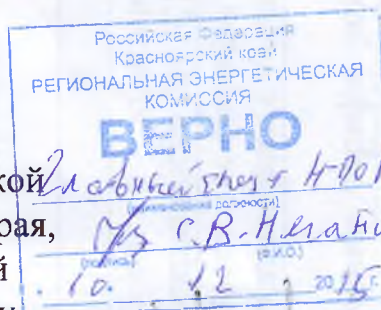 Российская Федерация
Красноярский край
РЕГИОНАЛЬНАЯ ЭНЕРГЕТИЧЕСКАЯ
КОМИССИЯ
ВЕРНО
кой Главный
(наименование должности)
рая, С.В.
(подпись) (Ф.И.О.)
й
10. 12 2015 г.